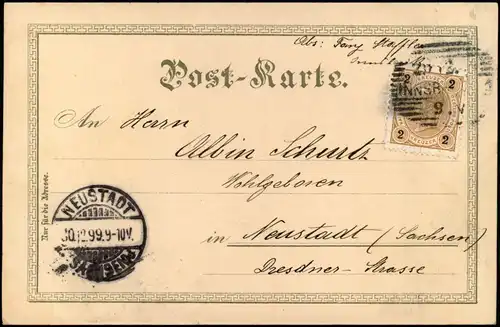 Abs: Fany
Post-Karte.
2 2
INNSB
9
2 2
An Herrn
Albin Schurtz
Wohlgeboren
in Neustadt (Sachsen)
Dresdner-Strasse
Nur für die Adresse.
NEUSTADT
30.12.99.9-10V.